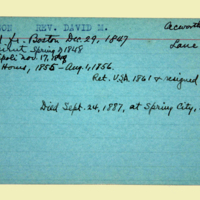 REV. DAVID M. Acworth
Boston Dec. 29, 1847 Lane
Spring of 1848
Nov. 17, 1848
Hours, 1855 - Aug. 1, 1856.
Ret. USA 1861 & resigned
Died Sept. 24, 1887, at Spring City,